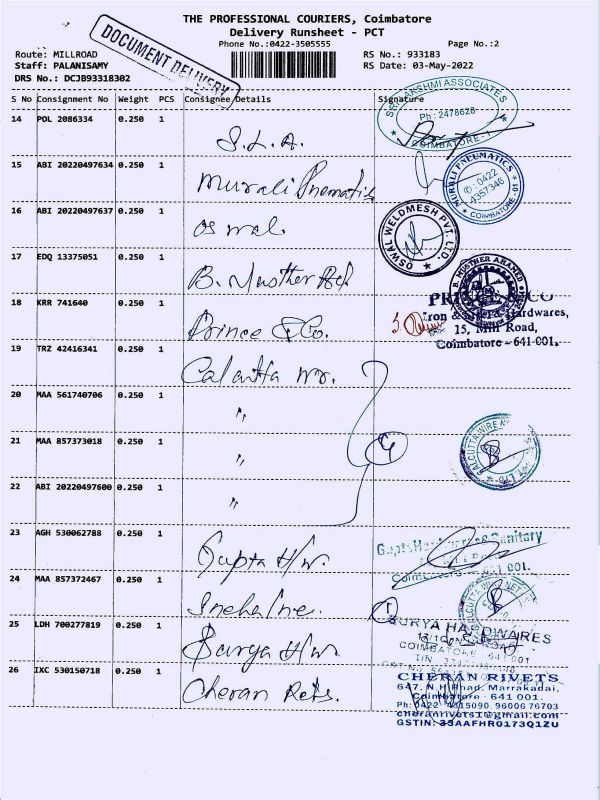 THE PROFESSIONAL COURIERS, Coimbatore
Delivery Runsheet - PCT
DOCUMENT DELIVERY
Phone No.:0422-3505555 Page No.:2
Route: MILLROAD RS No.: 933183
Staff: PALANISAMY RS Date: 03-May-2022
DRS No.: DCJB93318302
S No Consignment No Weight PCS Consignee Details Signature
14 POL 2086334 0.250 1
S.L.A.
Ph: 2478628
COIMBATORE-1
15 ABI 20220497634 0.250 1
Murali Pnematik
MURALI PNEUMATICS
0422
4357346
COIMBATORE
16 ABI 20220497637 0.250 1
oswal
OSWAL WELDMESH PVT. LTD.
17 EDQ 13375051 0.250 1
B. Musther
B. MUSTHER AHAMED
18 KRR 741640 0.250 1
Prince & Co.
PRINCE & CO
Hardwares,
15, Mill Road,
Coimbatore - 641 001.
19 TRZ 42416341 0.250 1
Calcutta
20 MAA 561740706 0.250 1
"
21 MAA 857373018 0.250 1
"
4
CALCUTTA WIRE
22 ABI 20220497600 0.250 1
"
23 AGH 530062788 0.250 1
Gupta H/w.
Sanitary
24 MAA 857372467 0.250 1
1
25 LDH 700277819 0.250 1
Surya H/w.
SURYA HARDWARES
COIMBATORE - 641 001
26 IXC 530150718 0.250 1
Cheran Rets.
CHERAN RIVETS
647, N.H. Road, Marrakadai,
Coimbatore - 641 001.
Ph: 0422 - 4315090, 96006 76703
cheranrivets1@gmail.com
GSTIN: 33AAFHR0173Q1ZU